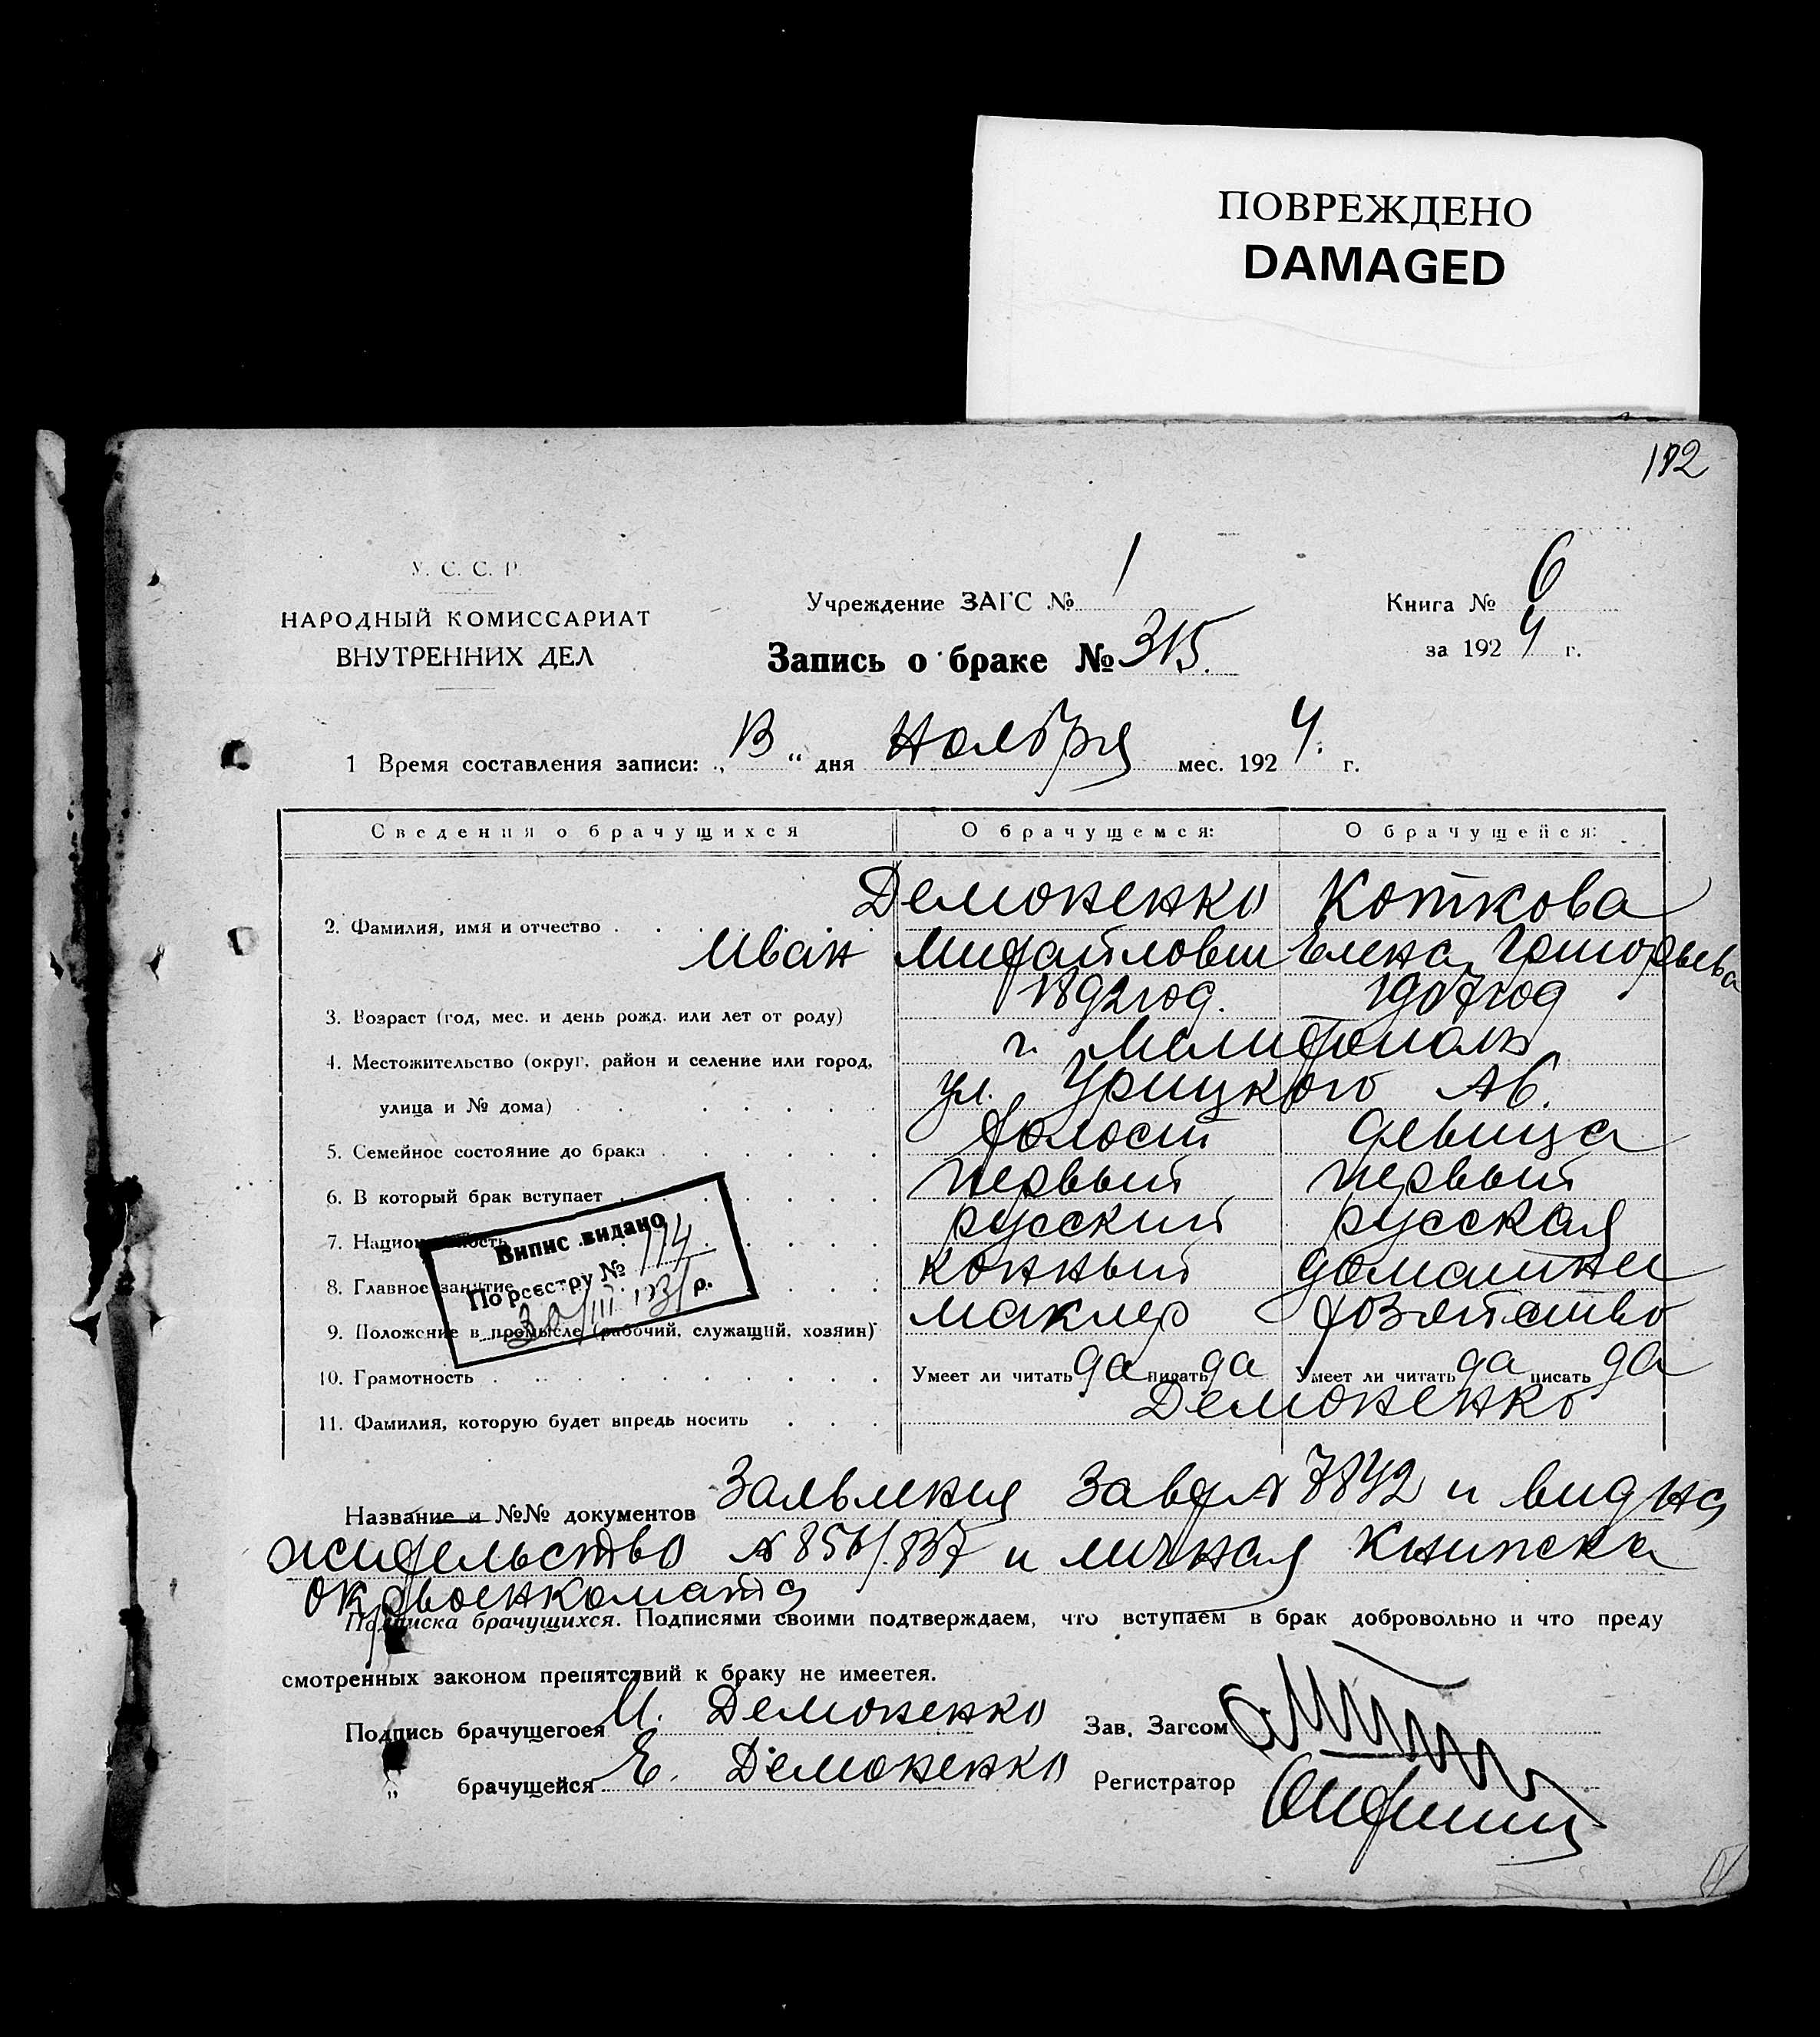 ПОВРЕЖДЕНО
DAMAGED
192
У. С. С. Р.
НАРОДНЫЙ КОМИССАРИАТ
ВНУТРЕННИХ ДЕЛ
Учреждение ЗАГС № 1
Запись о браке № 315.
Книга № 6
за 1924 г.
1 Время составления записи: „13“ дня Ноября мес. 1924. г.
Сведения о брачущихся О брачущемся: О брачущейся:
2. Фамилия, имя и отчество Демоненко Коткова
Иван Михайлович Елена Григорьева
3. Возраст (год, мес. и день рожд. или лет от роду) 1892 год. 1907 год
4. Местожительство (округ, район и селение или город, г. Мелитополь
улица и № дома) ул. Урицкого
5. Семейное состояние до брака холост девица
6. В который брак вступает первый первый
7. Национальность русский русская
8. Главное занятие конный домашнее
9. Положение в промысле (рабочий, служащий, хозяин) маклер хозяйство
10. Грамотность Умеет ли читать да писать да Умеет ли читать да писать да
11. Фамилия, которую будет впредь носить Демоненко
Випис видано
По реєстру № 174
30/III 1931 р.
Название и №№ документов Заявления № 7842 и вид на
жительство № 856/837 и личная книжка
окрвоенкомата
Подписка брачущихся. Подписями своими подтверждаем, что вступаем в брак добровольно и что преду
смотренных законом препятствий к браку не имеется.
Подпись брачущегося И. Демоненко Зав. Загсом
„ брачущейся Е. Демоненко Регистратор